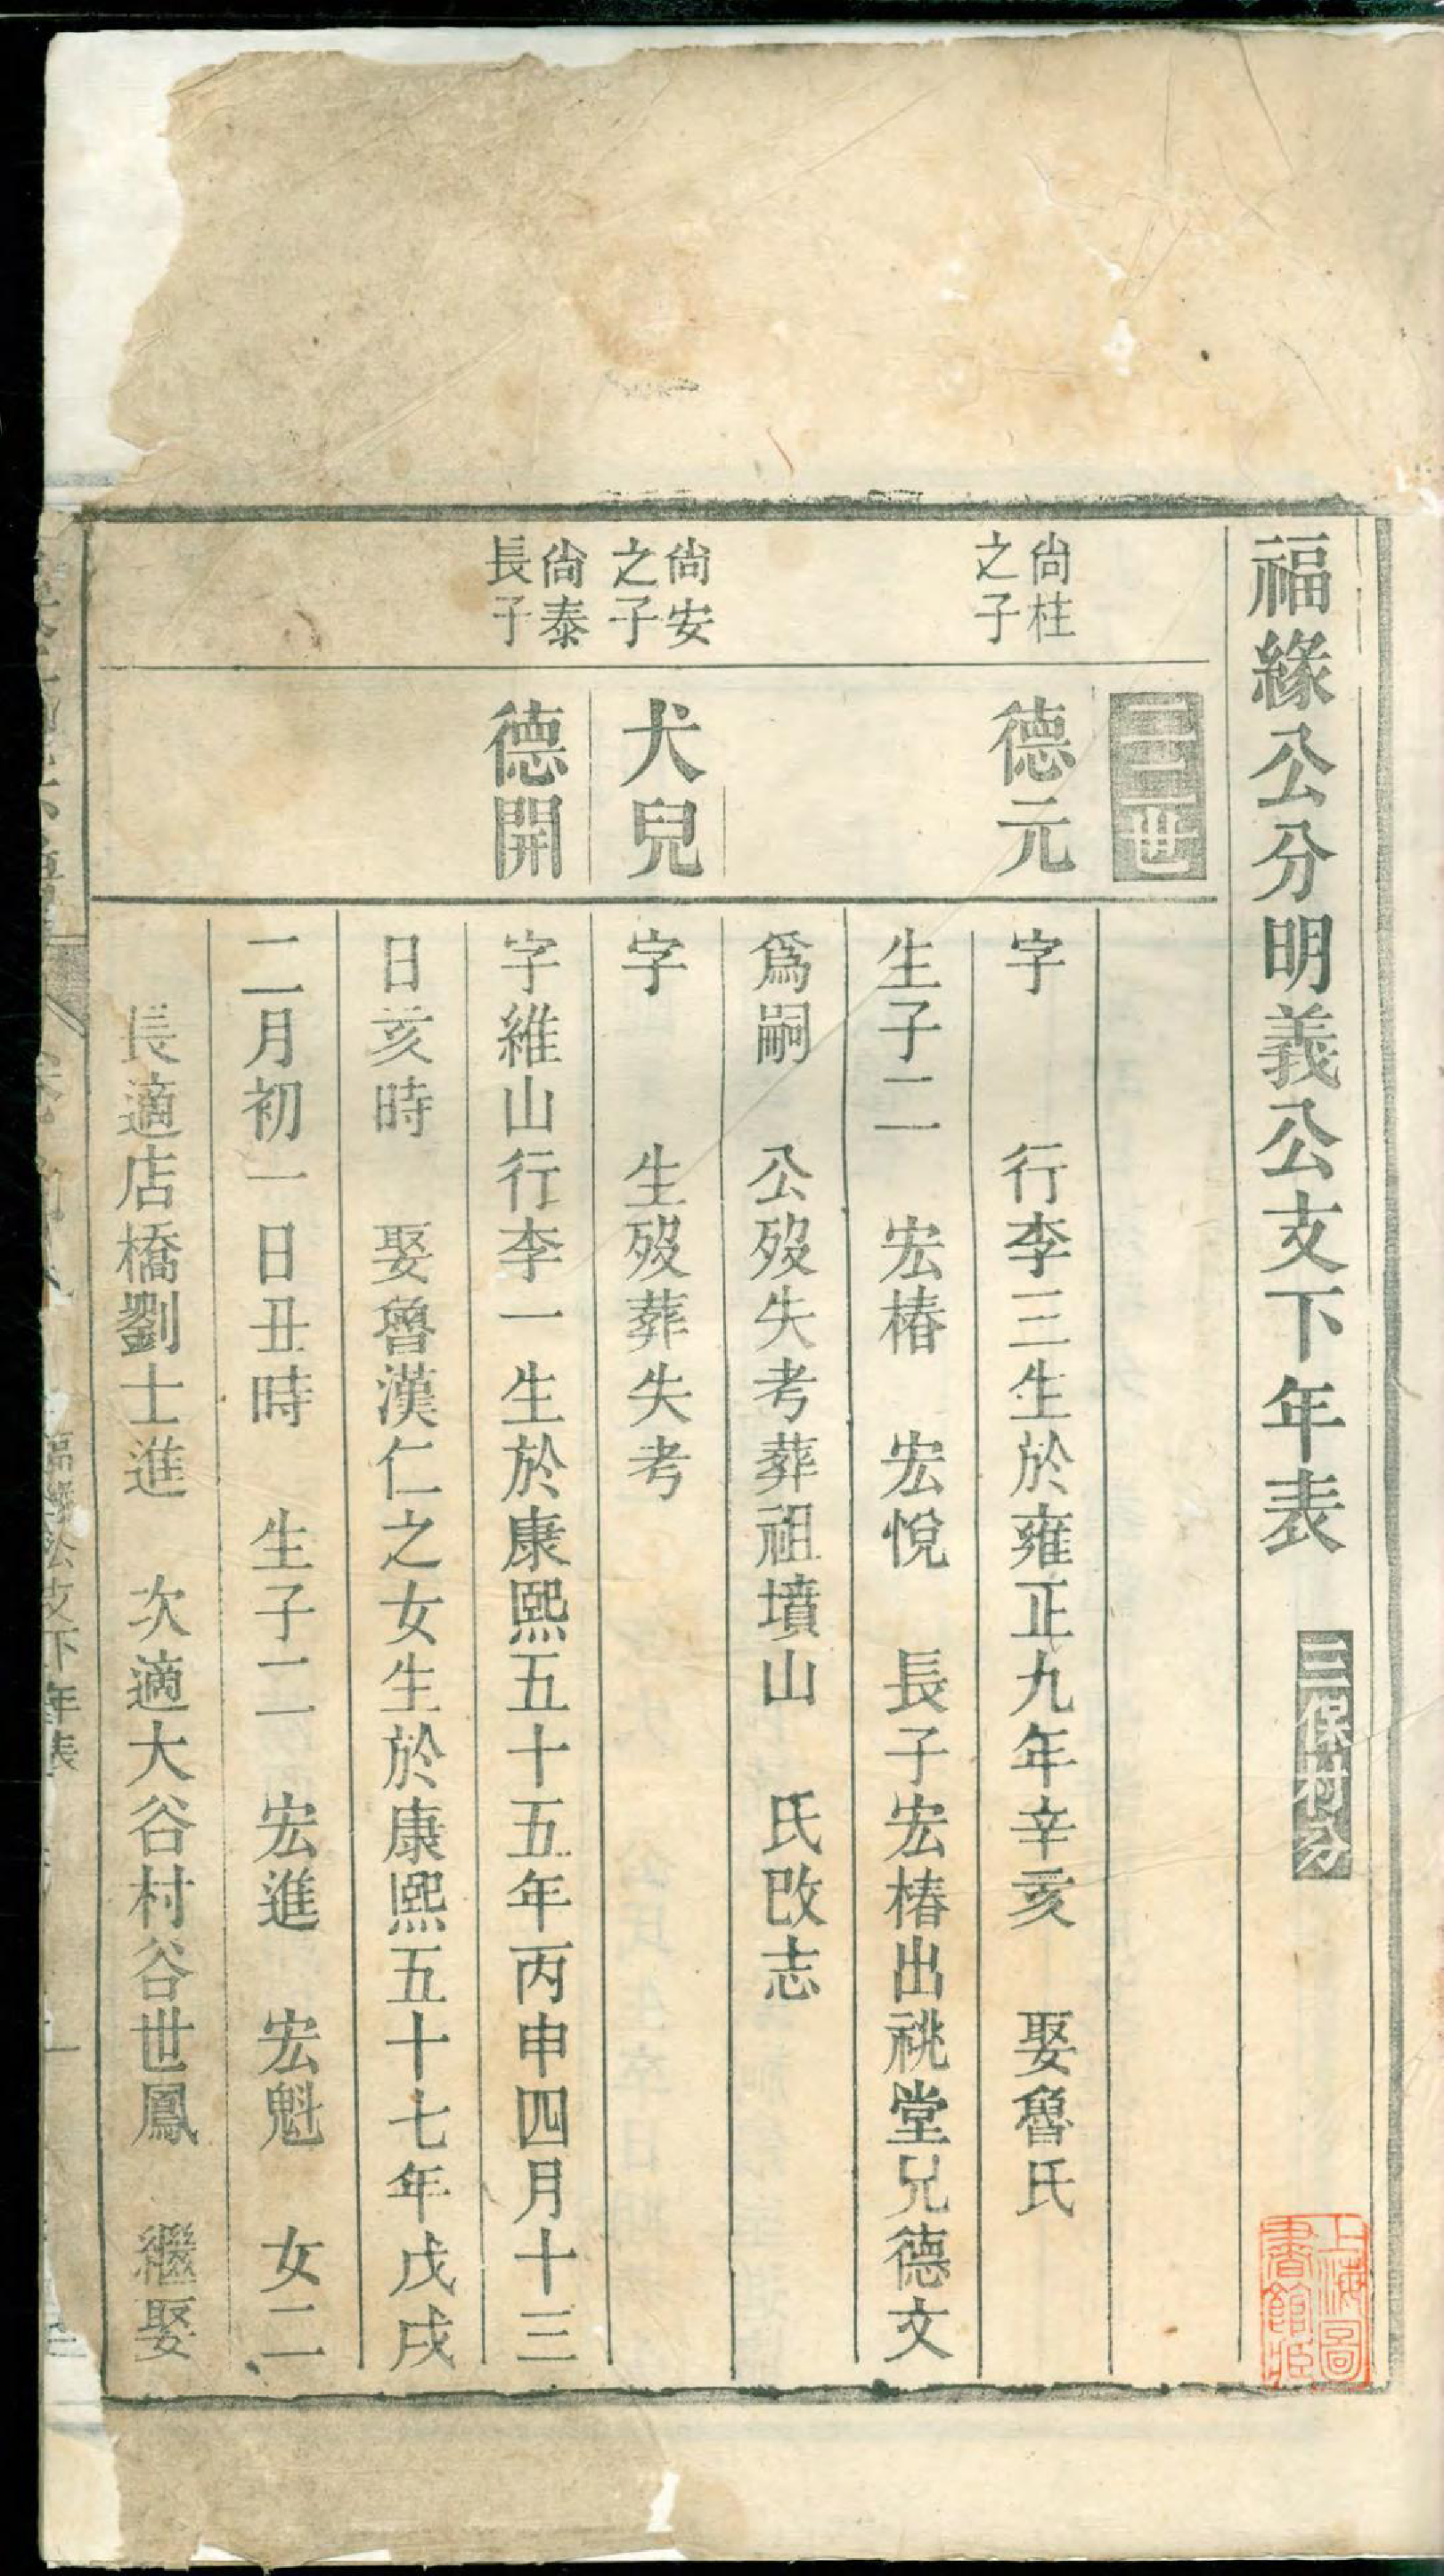 福緣公分明義公支下年表 三保村分
上海圖書館藏
二三世
尙柱之子
德元
字 行李三生於雍正九年辛亥 娶魯氏
生子二 宏椿 宏悅 長子宏椿出祧堂兄德文
爲嗣 公歿失考葬祖墳山 氏改志
尙安之子
犬兒
字 生歿葬失考
尙泰長子
德開
字維山行李一生於康熙五十五年丙申四月十三
日亥時 娶魯漢仁之女生於康熙五十七年戊戌
二月初一日丑時 生子二 宏進 宏魁 女二
長適店橋劉士進 次適大谷村谷世鳳 繼娶
福緣公支下年表